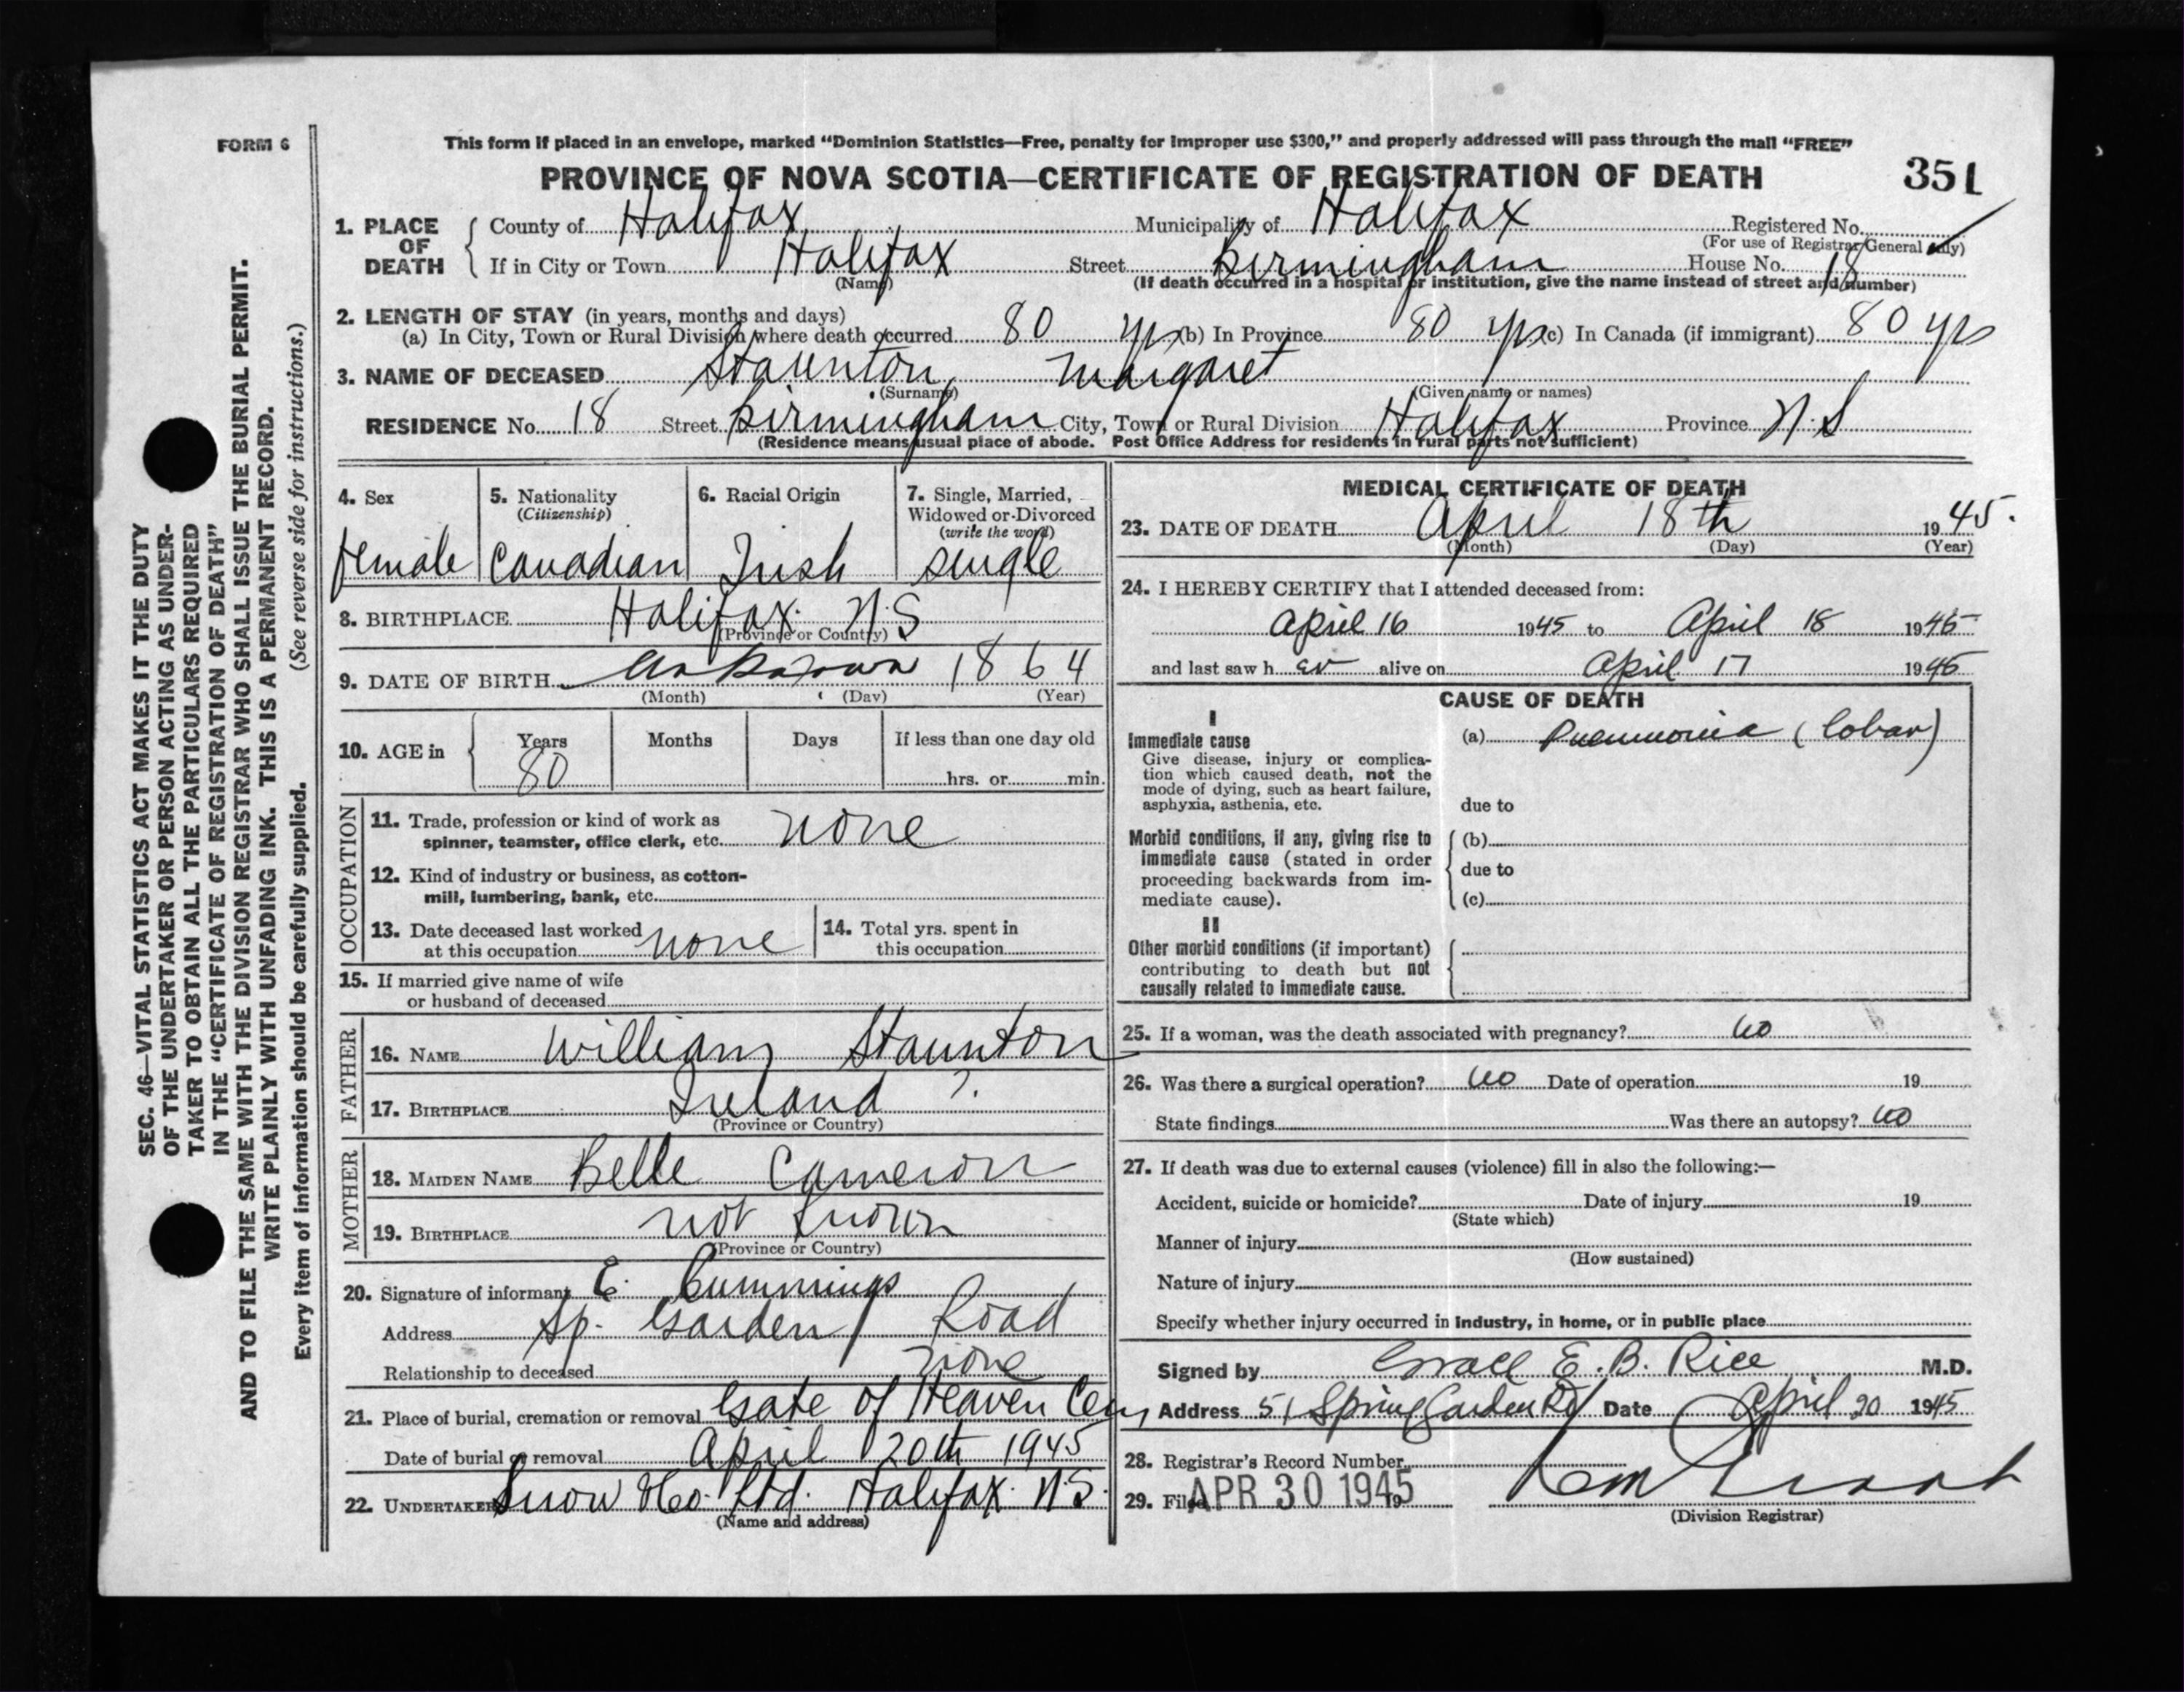 FORM 6
This form if placed in an envelope, marked “Dominion Statistics—Free, penalty for improper use $300,” and properly addressed will pass through the mail “FREE”
PROVINCE OF NOVA SCOTIA—CERTIFICATE OF REGISTRATION OF DEATH 351
1. PLACE OF DEATH { County of Halifax Municipality of Halifax Registered No.
(For use of Registrar General only)
If in City or Town Halifax Street Birmingham House No. 18
(Name) (If death occurred in a hospital or institution, give the name instead of street and number)
2. LENGTH OF STAY (in years, months and days)
(a) In City, Town or Rural Division where death occurred 80 yrs (b) In Province 80 yrs (c) In Canada (if immigrant) 80 yrs
3. NAME OF DECEASED Staunton, Margaret
(Surname) (Given name or names)
RESIDENCE No. 18 Street Birmingham City, Town or Rural Division Halifax Province N.S
(Residence means usual place of abode. Post Office Address for residents in rural parts not sufficient)
4. Sex 5. Nationality (Citizenship) 6. Racial Origin 7. Single, Married, Widowed or Divorced (write the word)
female Canadian Irish single
8. BIRTHPLACE Halifax N.S
(Province or Country)
9. DATE OF BIRTH unknown 1864
(Month) (Day) (Year)
10. AGE in { Years Months Days If less than one day old
80 hrs. or min.
OCCUPATION
11. Trade, profession or kind of work as
spinner, teamster, office clerk, etc. none
12. Kind of industry or business, as cotton-
mill, lumbering, bank, etc.
13. Date deceased last worked
at this occupation none
14. Total yrs. spent in
this occupation
15. If married give name of wife
or husband of deceased
FATHER
16. NAME William Staunton
17. BIRTHPLACE Ireland ?
(Province or Country)
MOTHER
18. MAIDEN NAME Belle Cameron
19. BIRTHPLACE not known
(Province or Country)
20. Signature of informant E. Cummings
Address Sp. Garden Road
Relationship to deceased none
21. Place of burial, cremation or removal Gate of Heaven Cem
Date of burial or removal April 20th 1945
22. UNDERTAKER Snow & Co. Ltd. Halifax. N.S.
(Name and address)
MEDICAL CERTIFICATE OF DEATH
23. DATE OF DEATH April 18th 1945.
(Month) (Day) (Year)
24. I HEREBY CERTIFY that I attended deceased from:
April 16 1945 to April 18 1945
and last saw her alive on April 17 1945
CAUSE OF DEATH
I
Immediate cause
Give disease, injury or complica-
tion which caused death, not the
mode of dying, such as heart failure,
asphyxia, asthenia, etc.
(a) Pneumonia (lobar)
due to
Morbid conditions, if any, giving rise to
immediate cause (stated in order
proceeding backwards from im-
mediate cause).
(b)
due to
(c)
II
Other morbid conditions (if important)
contributing to death but not
causally related to immediate cause.
25. If a woman, was the death associated with pregnancy? no
26. Was there a surgical operation? no Date of operation 19
State findings Was there an autopsy? no
27. If death was due to external causes (violence) fill in also the following:—
Accident, suicide or homicide? Date of injury 19
(State which)
Manner of injury
(How sustained)
Nature of injury
Specify whether injury occurred in industry, in home, or in public place
Signed by Grace E. B. Rice M.D.
Address 51 Spring Garden Rd Date April 20 1945
28. Registrar's Record Number
29. Filed APR 30 1945 19
(Division Registrar)
SEC. 46—VITAL STATISTICS ACT MAKES IT THE DUTY
OF THE UNDERTAKER OR PERSON ACTING AS UNDER-
TAKER TO OBTAIN ALL THE PARTICULARS REQUIRED
IN THE “CERTIFICATE OF REGISTRATION OF DEATH”
AND TO FILE THE SAME WITH THE DIVISION REGISTRAR WHO SHALL ISSUE THE BURIAL PERMIT.
WRITE PLAINLY WITH UNFADING INK. THIS IS A PERMANENT RECORD.
Every item of information should be carefully supplied. (See reverse side for instructions.)